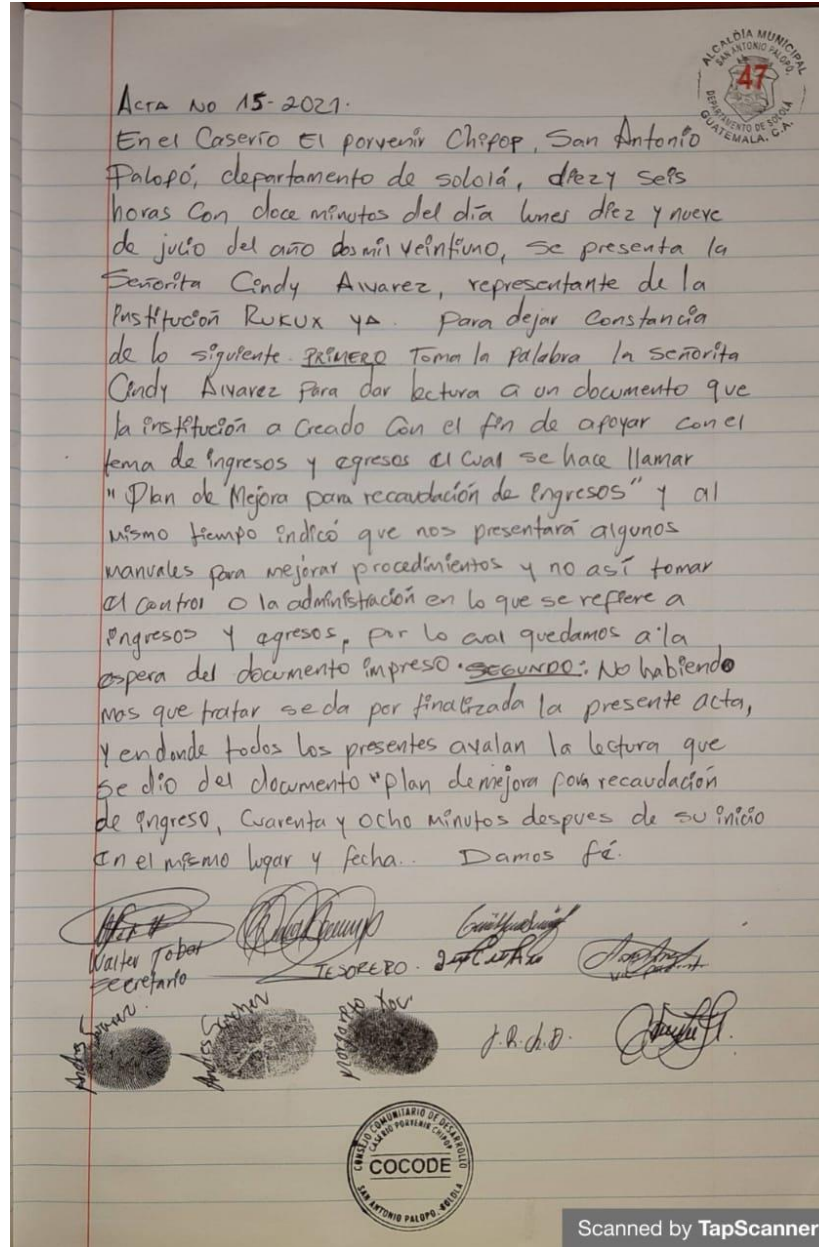 ALCALDIA MUNICIPAL
SAN ANTONIO PALOPÓ,
47
DEPARTAMENTO DE SOLOLÁ
GUATEMALA, C.A.
ACTA NO 15-2021.
En el Caserío El porvenir Chipop, San Antonio
Palopó, departamento de sololá, diez y seis
horas Con doce minutos del día lunes diez y nueve
de julio del año dos mil veintiuno, se presenta la
Señorita Cindy Alvarez, representante de la
institución RUKUX YA. Para dejar Constancia
de lo siguiente. PRIMERO Toma la palabra la señorita
Cindy Alvarez Para dar lectura a un documento que
la institución a Creado Con el fin de apoyar con el
tema de ingresos y egresos el cual se hace llamar
"Plan de Mejora para recaudación de ingresos" y al
mismo tiempo indicó que nos presentará algunos
manuales para mejorar procedimientos y no así tomar
el control o la administración en lo que se refiere a
ingresos y egresos, por lo cual quedamos a la
espera del documento impreso. SEGUNDO: No habiendo
mas que tratar se da por finalizada la presente acta,
y en donde todos los presentes avalan la lectura que
se dio del documento "plan de mejora para recaudación
de ingreso, Cuarenta y ocho minutos despues de su inicio
en el mismo lugar y fecha.. Damos fé.
Walter Tobar
Secretario
TESORERO.
Andres
Andres Sanchez
Margarito Xoc
J.R.ch.D.
CONSEJO COMUNITARIO DE DESARROLLO
CASERIO PORVENIR CHIPOP
COCODE
SAN ANTONIO PALOPO, SOLOLA
Scanned by TapScanner